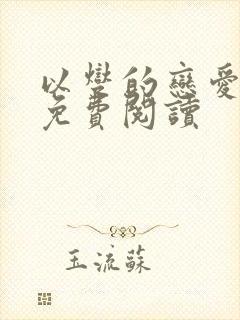 以孌的戀愛
免費閱讀
玉流蘇